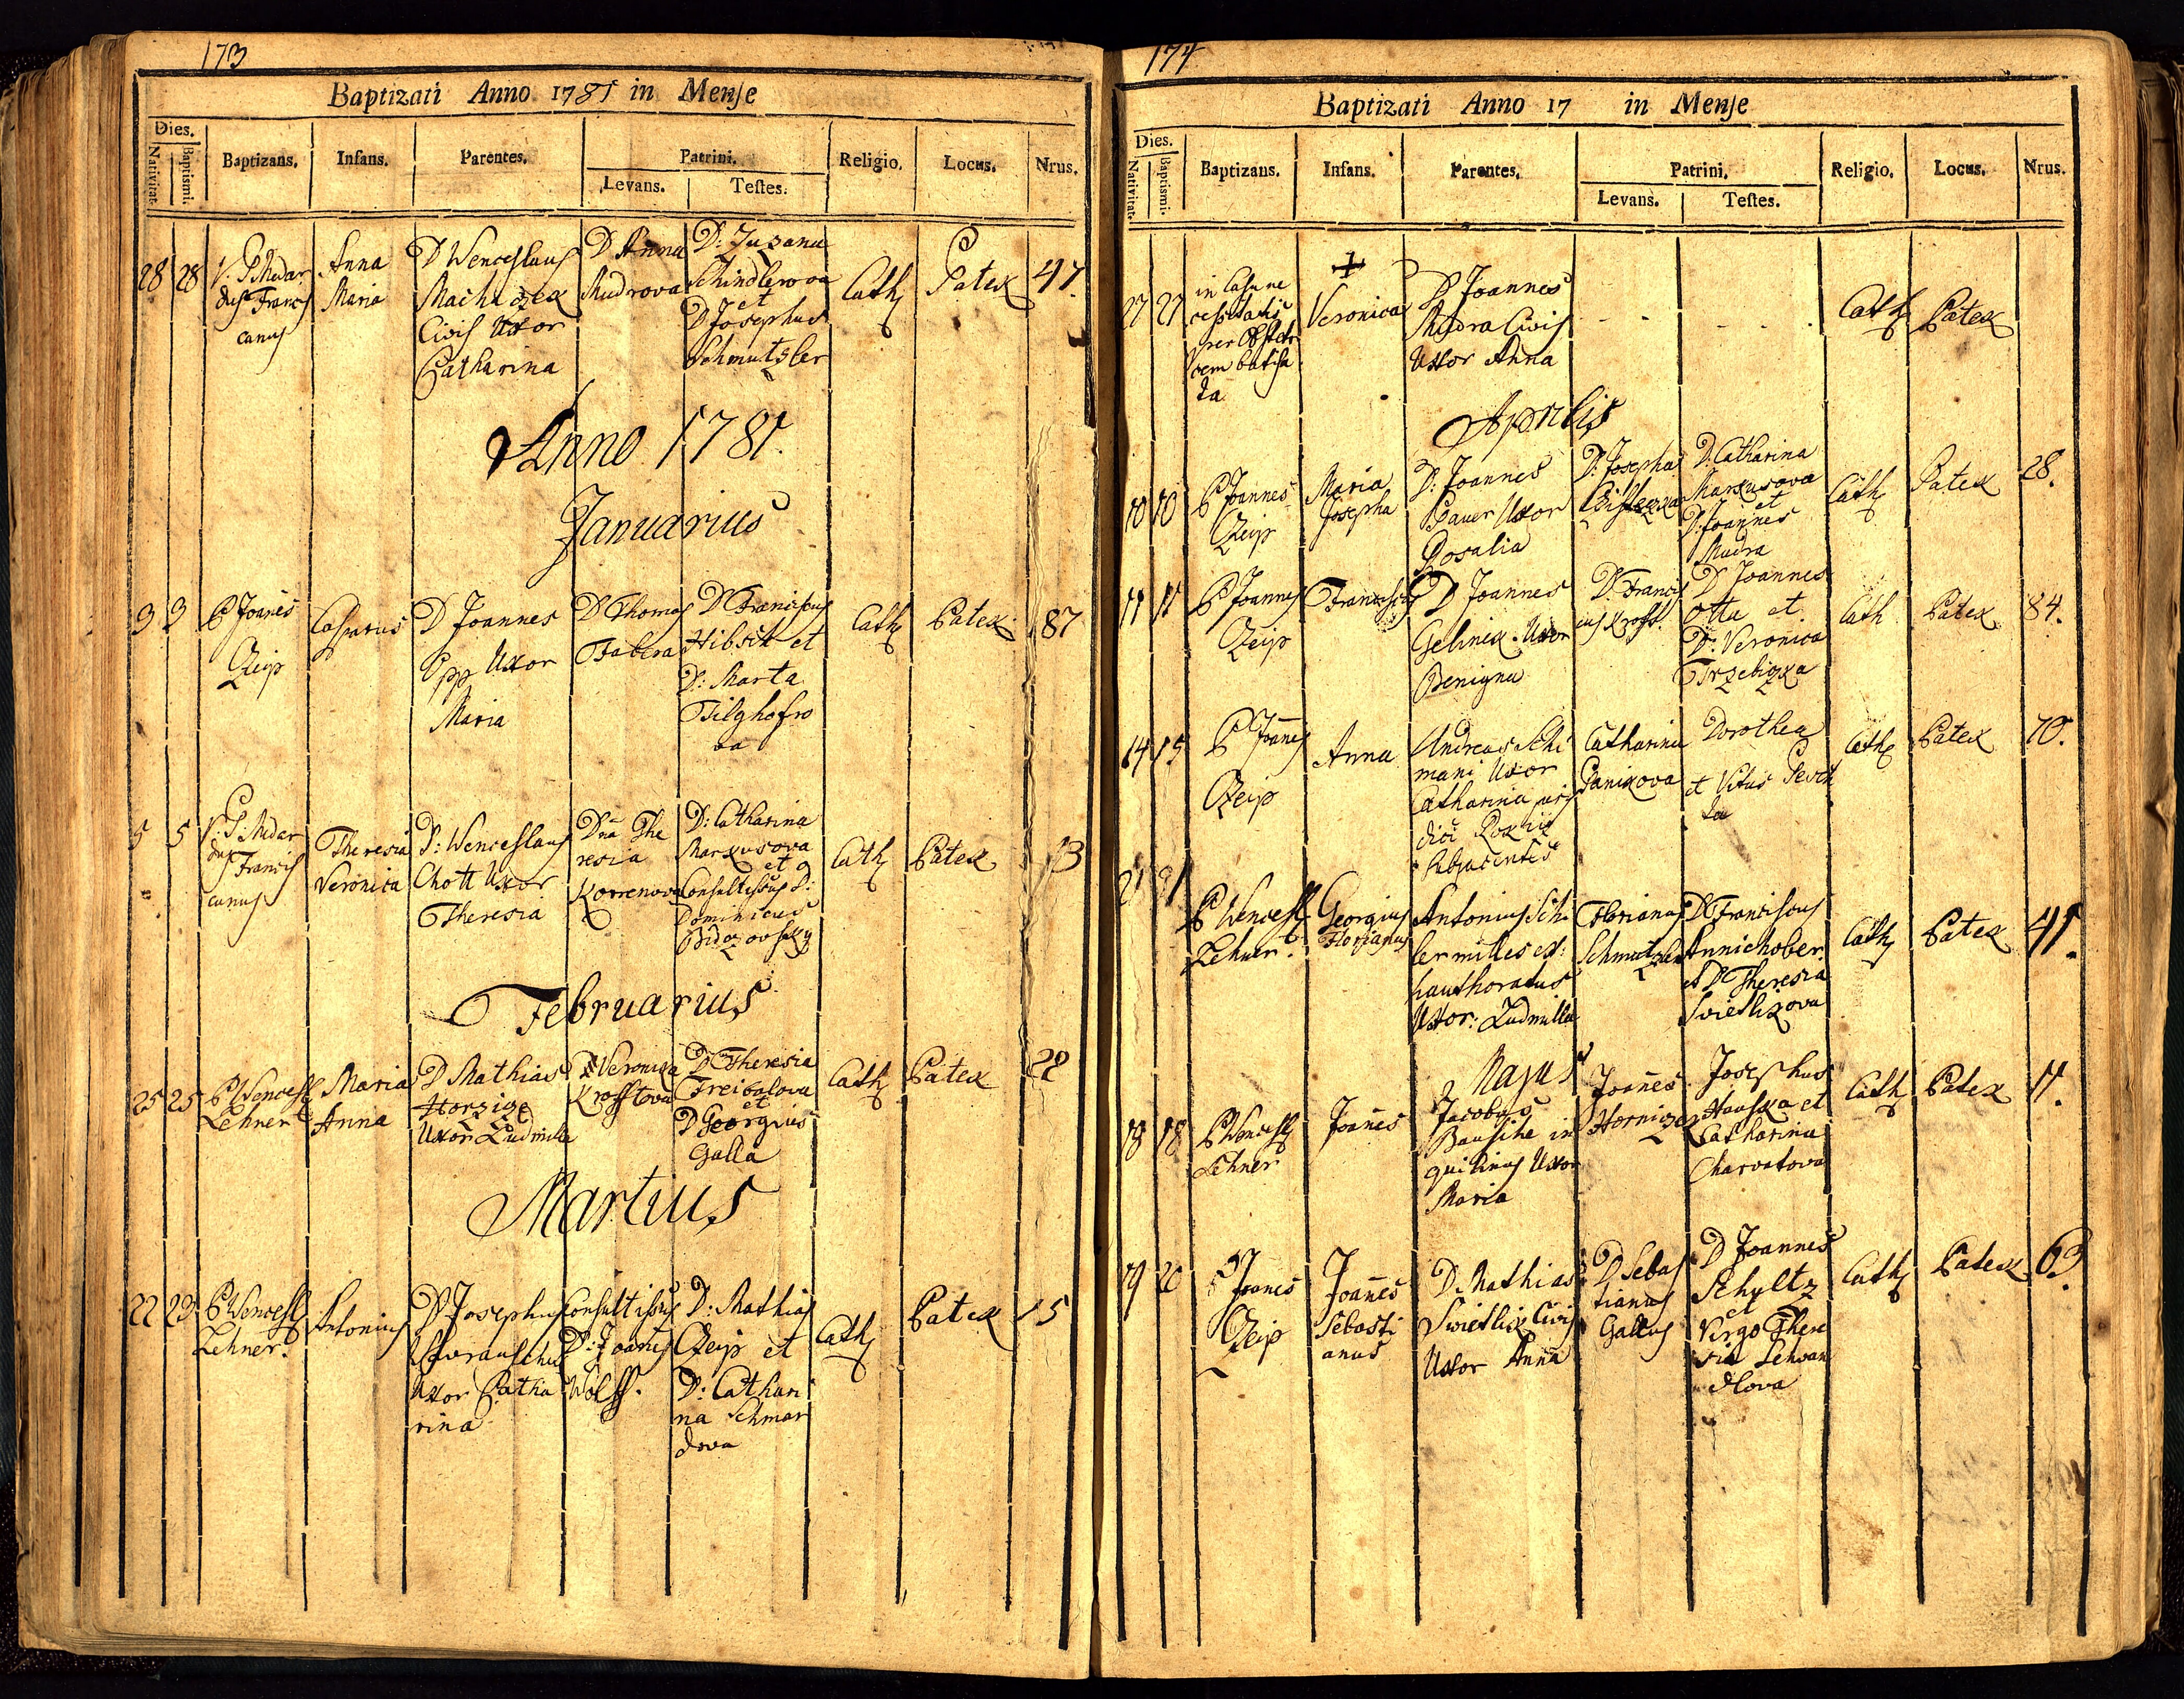 173
Baptizati Anno 1781 in Mense
Dies.
Nativitat.
Baptismi.
Baptizans.
Infans.
Parentes.
Patrini.
Levans.
Testes.
Religio.
Locus.
Nrus.
28 28 V. P. Medar
dus Francis
canus
Anna
Maria
D Wenceslaus
Machaczek
Civis Uxor
Catharina
D Anna
Mudrova
D: Zuzana
Schindlerova
et
D Josephus
Schmutzler
Cath
Patek
47.
Anno 1781.
Januarius
3 3
P Joanēs
Zeip
Casparus
D Joannes
Epp Uxor
Maria
D Thomas
Fabera
D Franciscus
Hibsch et
D: Marta
Tilghofro
va
Cath
Patek
87
5 5
V. P. Medar
dus Francis
canus
Theresia
Veronica
D: Wenceslaus
Chott Uxor
Theresia
Dnā The
resia
Korrenova
D: Catharina
Markusova
et
Consultissus D:
Dominicus
Bidczovsky
Cath
Patek
13
Februarius
25 25
P Wencesl
Lehner
Maria
Anna
D Mathias
Horzize
Uxor Ludmilla
D Veronika
Krofftova
D Theresia
Freibalova
et
D Georgius
Galla
Cath
Patek
22
Martius
22 23
P Wencesl
Lehner.
Antonius
D Josephus
Uxor Catha
rina
Consultissus
D: Joanēs
Wolff.
D: Mathias
Zeip et
D: Cathari
na Schmar
dova
Cath
Patek
15
174
Baptizati Anno 17 in Mense
Dies.
Nativitat.
Baptismi.
Baptizans.
Infans.
Parentes.
Patrini.
Levans.
Testes.
Religio.
Locus.
Nrus.
27 27
in Casu ne
cessitatis
per Obstetri
cem batisa
ta
Veronica
D Joannes
Mudra Civis
Uxor Anna
Cath
Patek
Aprilis
10 10
P Joannes
Zeip
Maria
Josepha
D: Joannes
Bauer Uxor
Rosalia
D: Josepha
D: Catharina
Markusova
et
D: Joannes
Mudra
Cath
Patek
28.
11 11
P Joannes
Zeip
Franciscus
D Joannes
Gelinek Uxor
Benigna
D: Francis
cus Krofft.
D Joannes
Otta et
D: Veronica
Trzebizka
Cath
Patek
84.
14 15
P Joanēs
Zeip
Anna
Andreas Schi
mani Uxor
Catharina
Catharina
Panikova
Dorothea
et Vitus
Cath
Patek
70.
21 21
P Wencesl
Lehner.
Georgius
Florianus
Antonius Schi
ler milles ex:
hauthoratus
Uxor: Ludmilla
Florianus
Schmutzler
D Franciscus
Annichober
et D Theresia
Svietlizova
Cath
Patek
41.
Majus
18 18
P Wencesl
Lehner
Joanēs
Jacobus
Bauschke in
quilinus Uxor
Maria
Joanēs
Horniczek
Josephus
Hauska et
Catharina
Charvatova
Cath
Patek
11.
19 20
P Joanēs
Zeip
Joanēs
Sebasti
anus
D. Mathias
Svietlik Civis
Uxor Anna
D Sebas
tianus
Gallus
D Joannes
Schultz
et
Virgo There
sia Schvan
dlova
Cath
Patek
63.